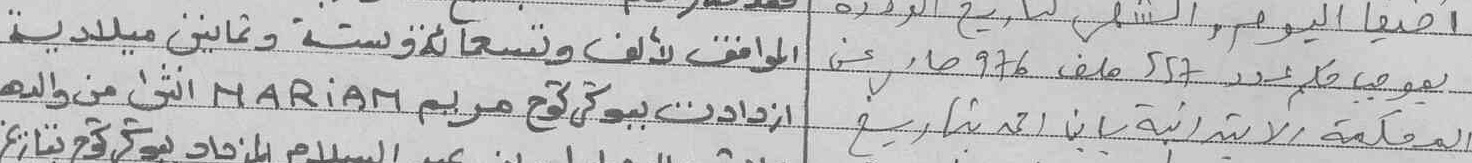 أضيفا اليوم والشهر لتاريخ الولادة
بموجب حكم عدد 557 ملف 976 صادر عن
المحكمة الابتدائية بابن احمد بتاريخ
الموافق لألف وتسعمائة وستة وثمانين ميلادية
ازدادت ببوكركوح مريم MARiAM انثى من والده
عبد السلام المزداد ببوكركوح